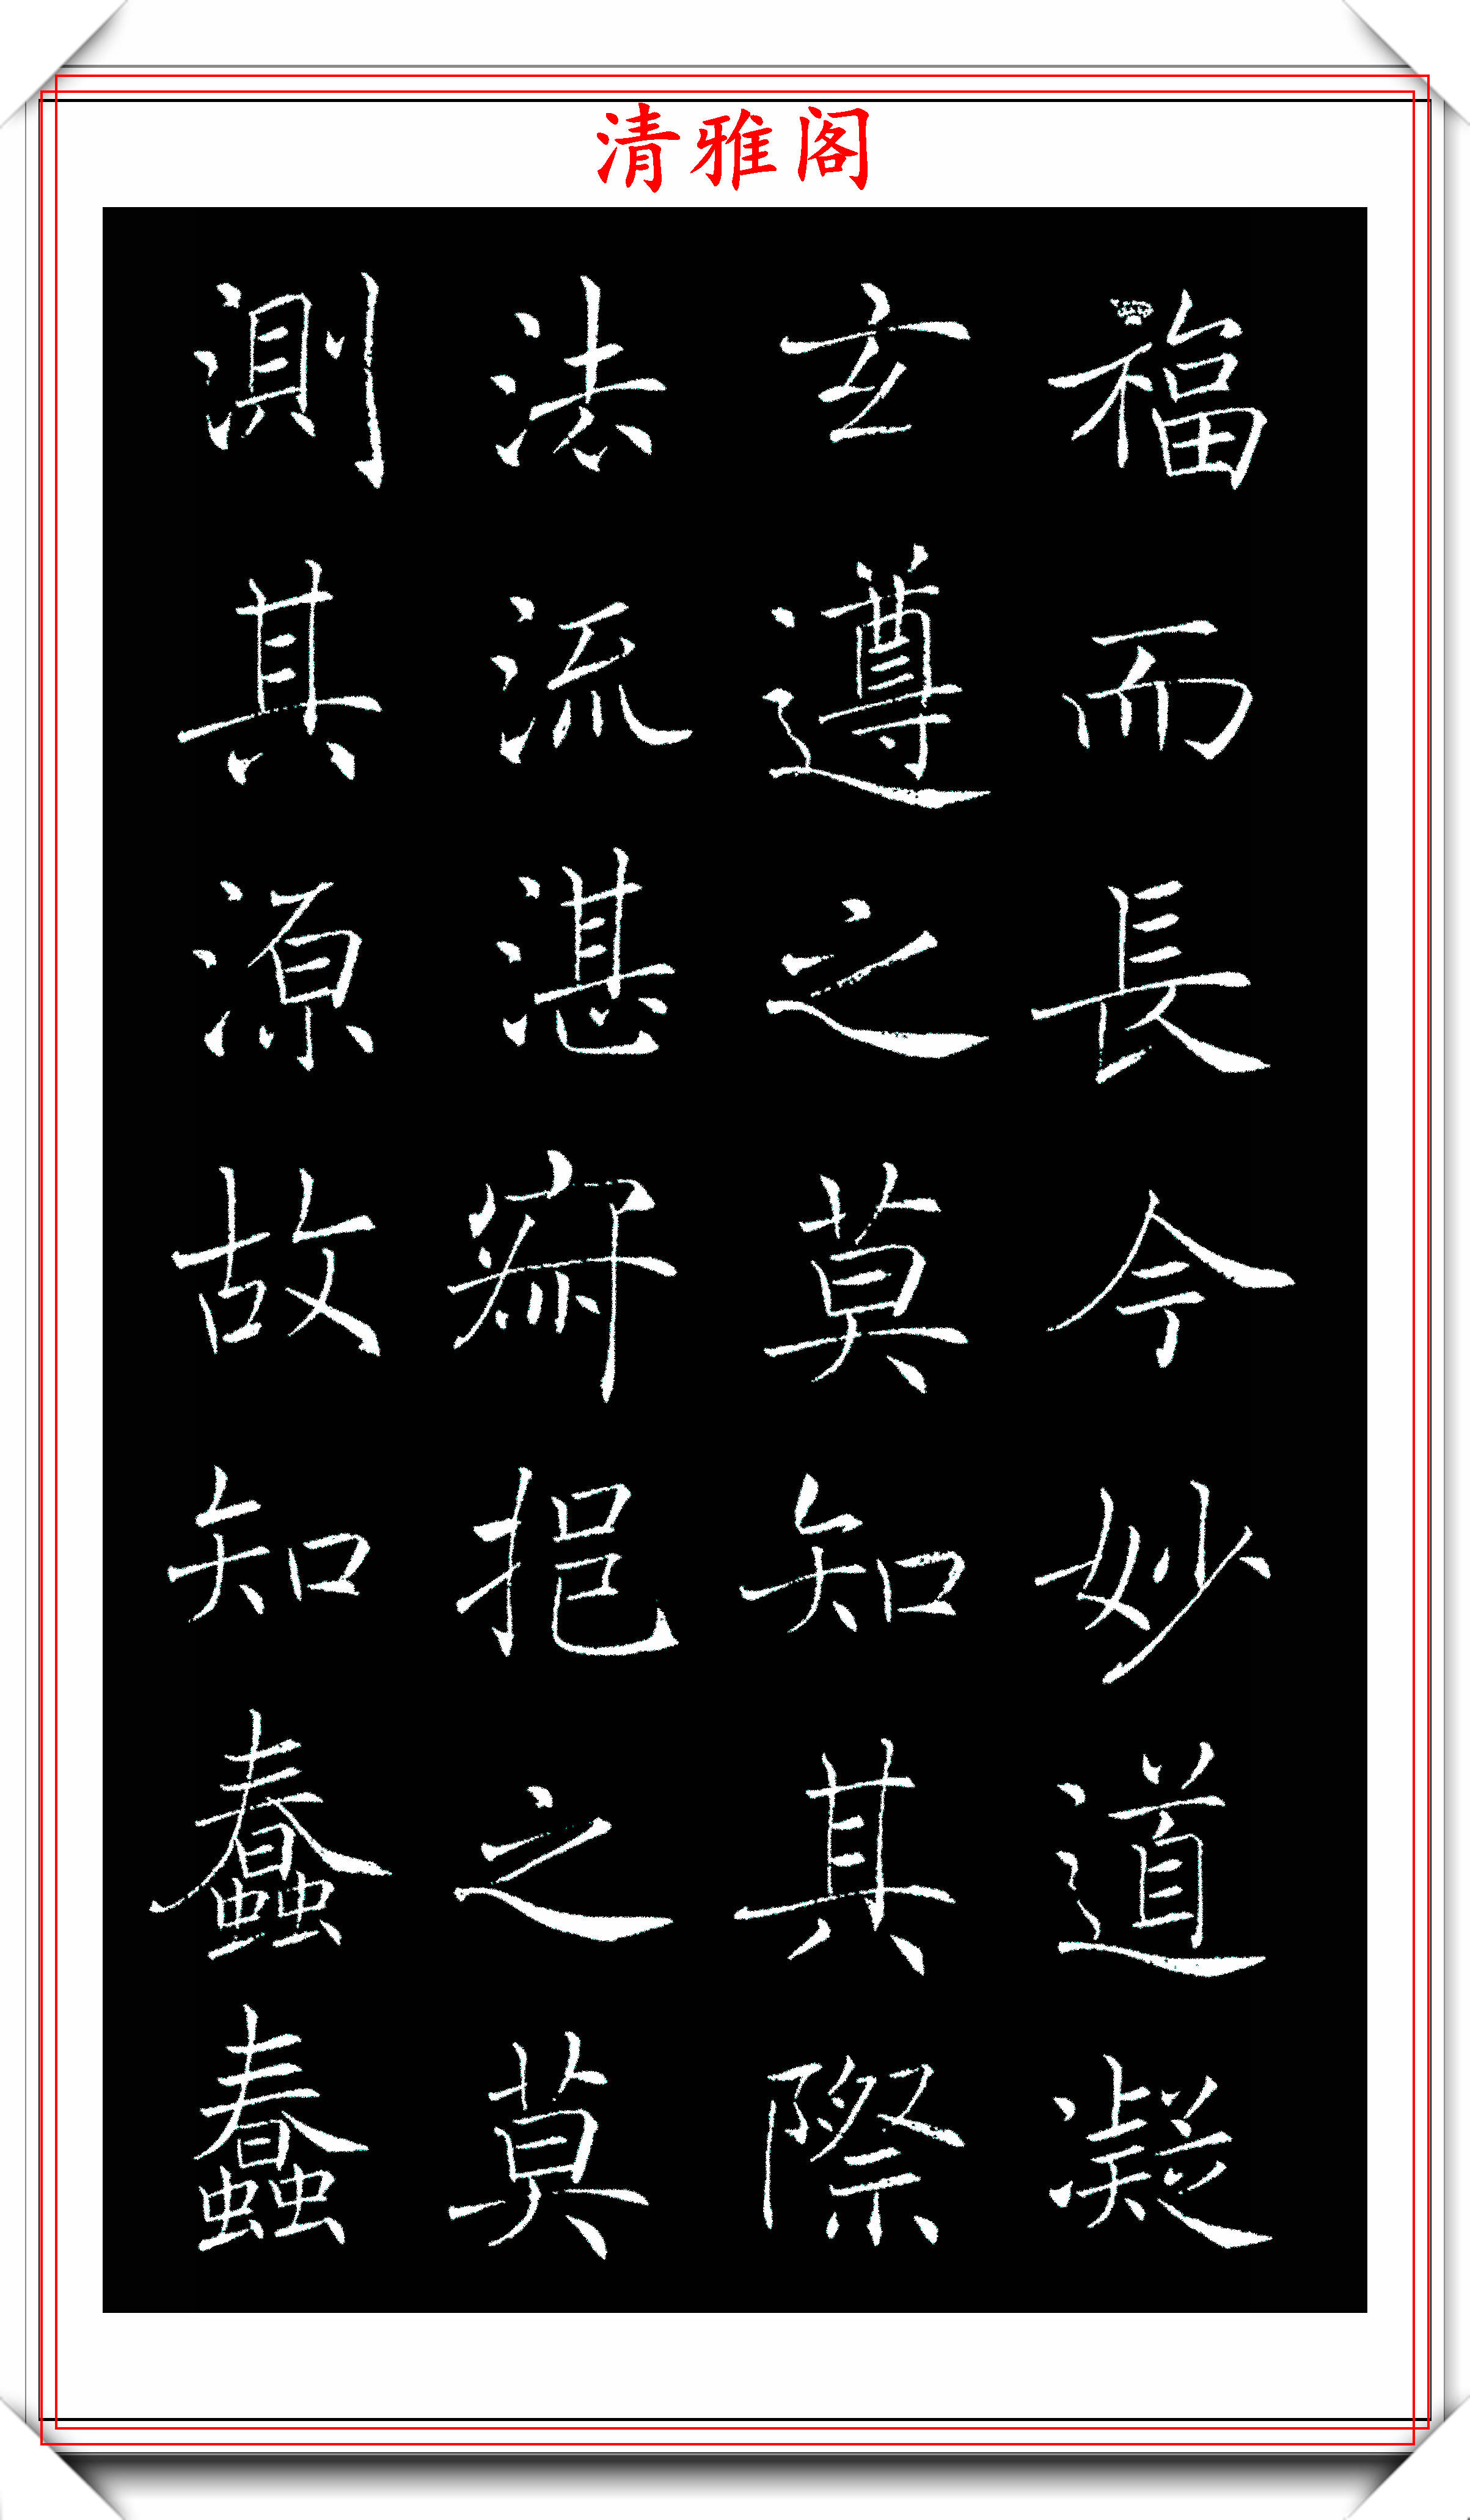 清雅阁
福而長今妙道凝
玄遵之莫知其際
法流湛寂挹之莫
測其源故知蠢蠢